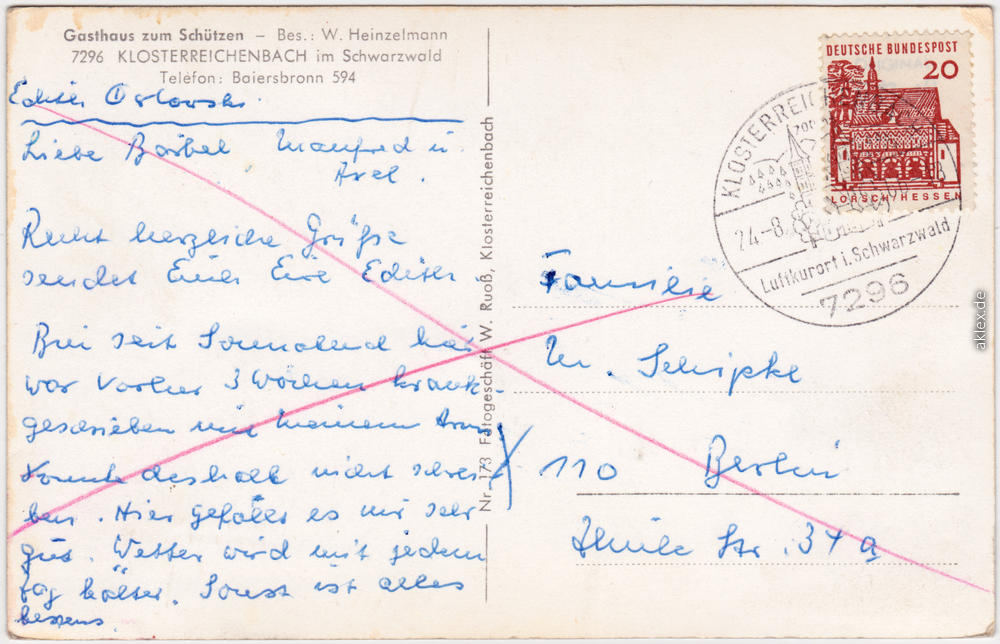 Gasthaus zum Schützen – Bes.: W. Heinzelmann
7296 KLOSTERREICHENBACH im Schwarzwald
Telefon: Baiersbronn 594
Edith Orlowski.
Liebe Bärbel Manfred u.
Axel.
Recht herzliche Grüße
sendet Euch Eure Edith
Bin seit Sonnabend hier
war vorher 3 Wochen krank-
geschrieben mit meinem Arm
konnte deshalb nicht schrei-
ben. Hier gefällt es mir sehr
gut. Wetter wird mit jedem
Tag kälter. Sonst ist alles
bestens.
Nr. 173 Fotogeschäft W. Ruoß, Klosterreichenbach
DEUTSCHE BUNDESPOST
20
LORSCH/HESSEN
KLOSTERREICH
24.-8.
Luftkurort i. Schwarzwald
7296
Familie
M. Schipke
110 Berlin
Str. 34 a
aklex.de